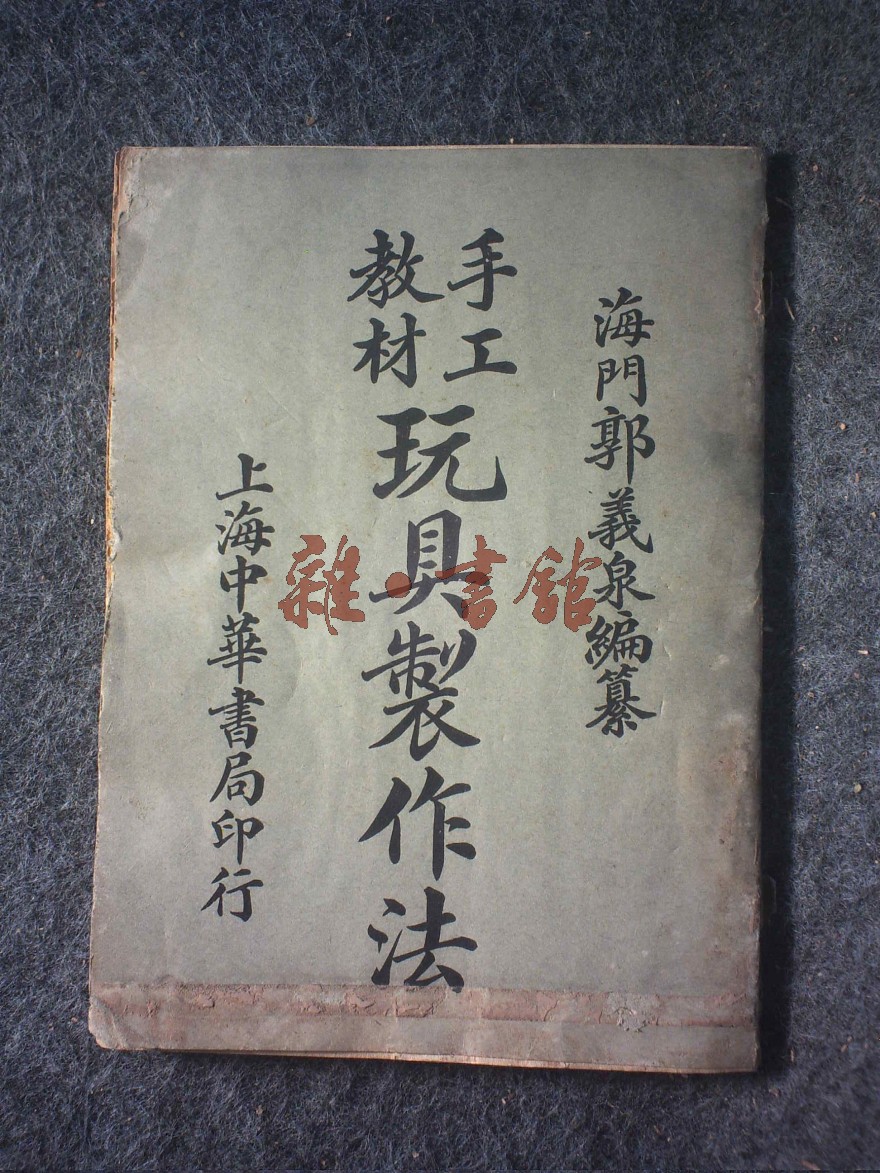 海門郭義泉編纂
手工
教材
玩具製作法
上海中華書局印行
雜·書館